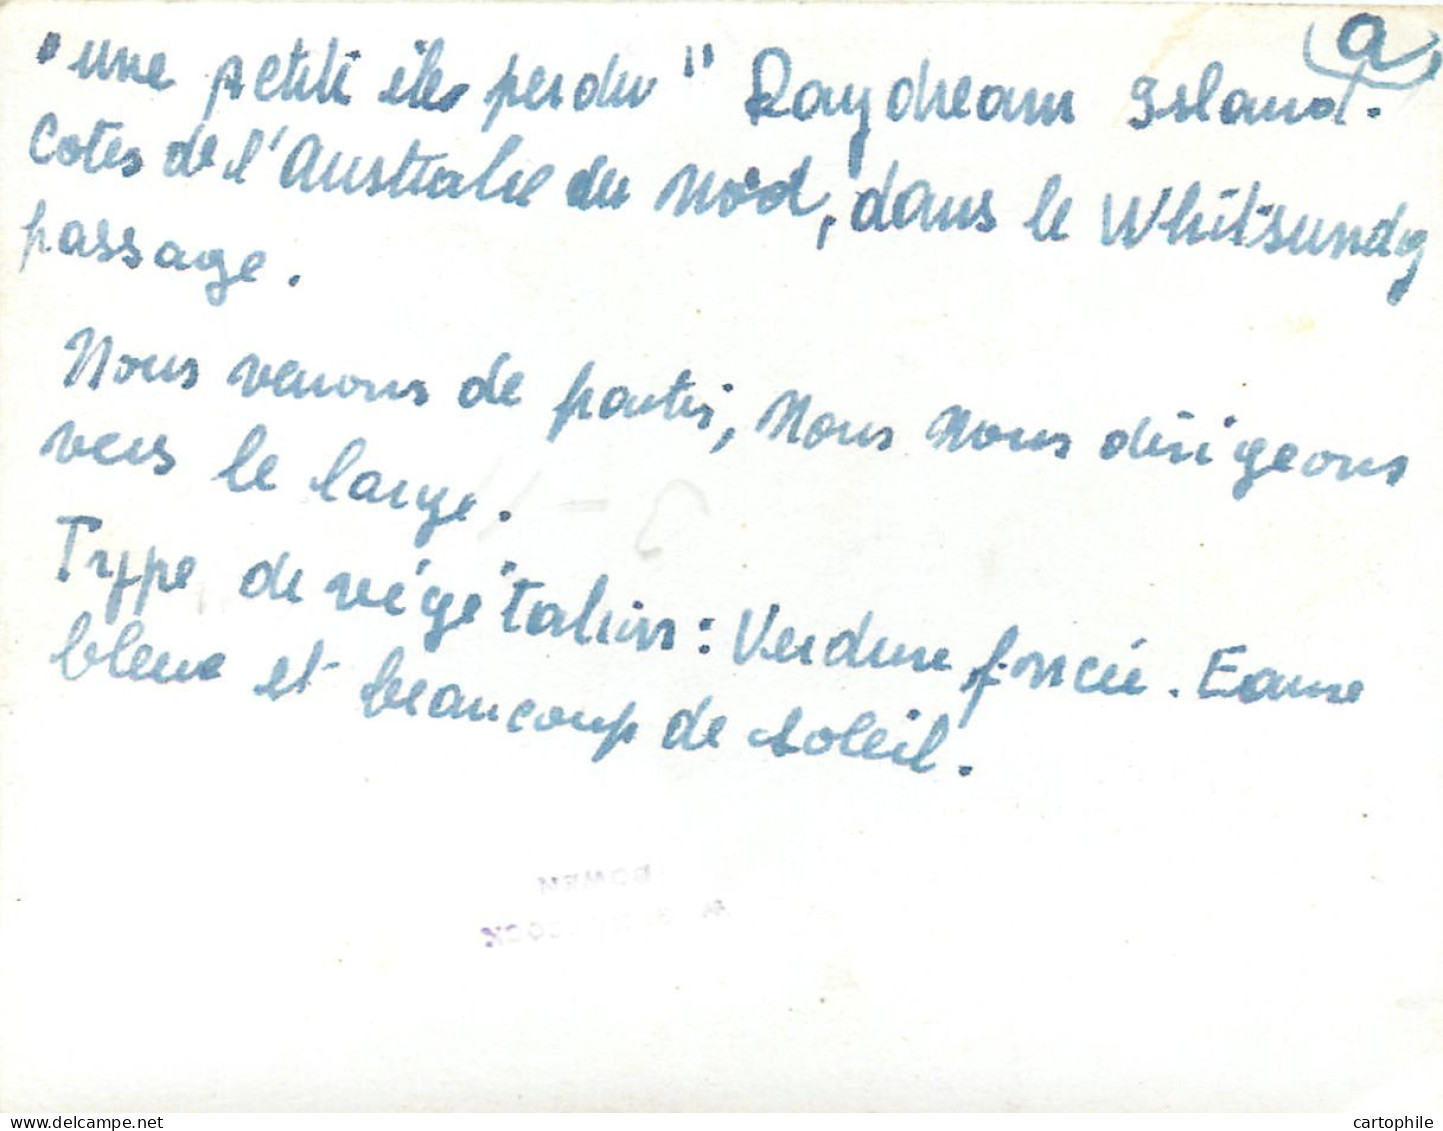 a
"une petite île perdue" Raydream Island.
Cotes de l'Australie du Nord, dans le Whitsundy
passage.
Nous venons de partir, Nous Nous dirigeons
vers le large.
Type de végétation : Verdure foncée. Eaux
bleue et beaucoup de soleil.
BOWEN
cartophile.com